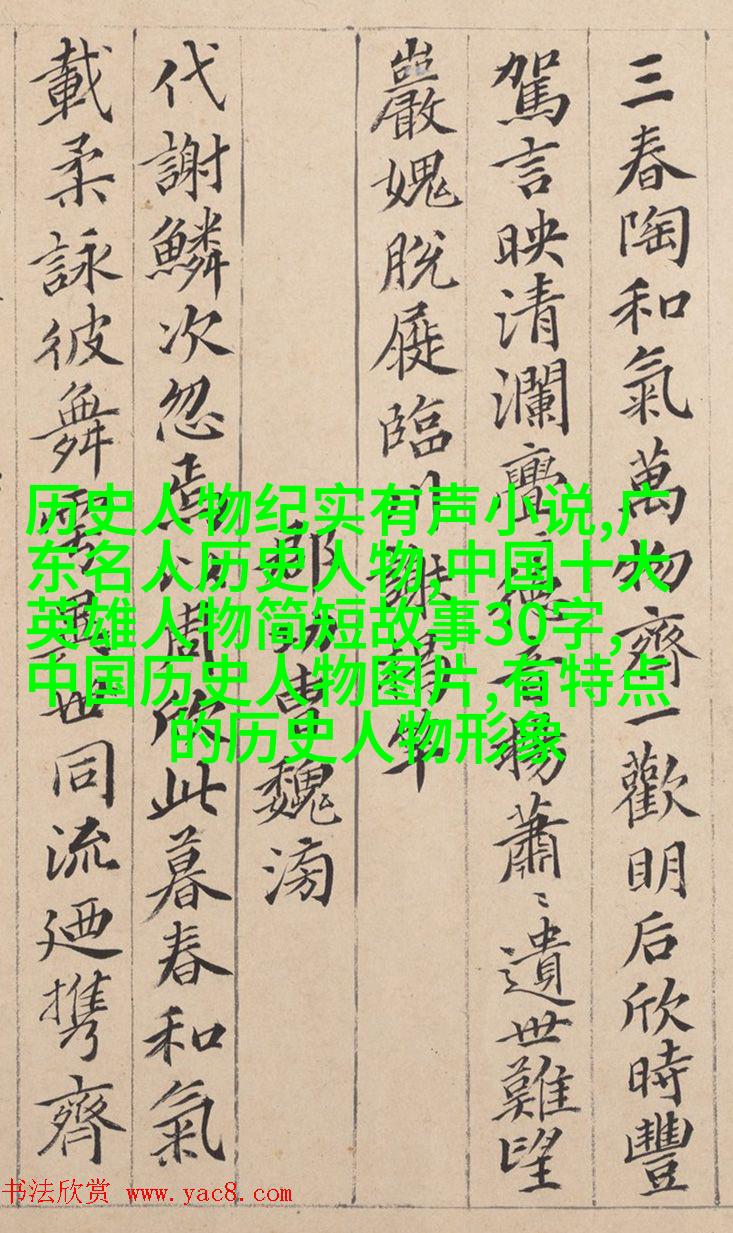 三春陶和氣萬物齊一歡明后欣時豐
駕言映清瀾亹〻德音暢蕭〻遺世難望
巖愧脫屣臨川謝揭竿
郡功曹魏滂
代謝鱗次忽焉以周欣此暮春和氣
載柔詠彼舞雩異世同流廼携齊
历史人物纪实有声小说,广
东名人历史人物,中国十大
英雄人物简短故事30字,
中国历史人物图片,有特点
的历史人物形象
书法欣赏 www.yac8.com